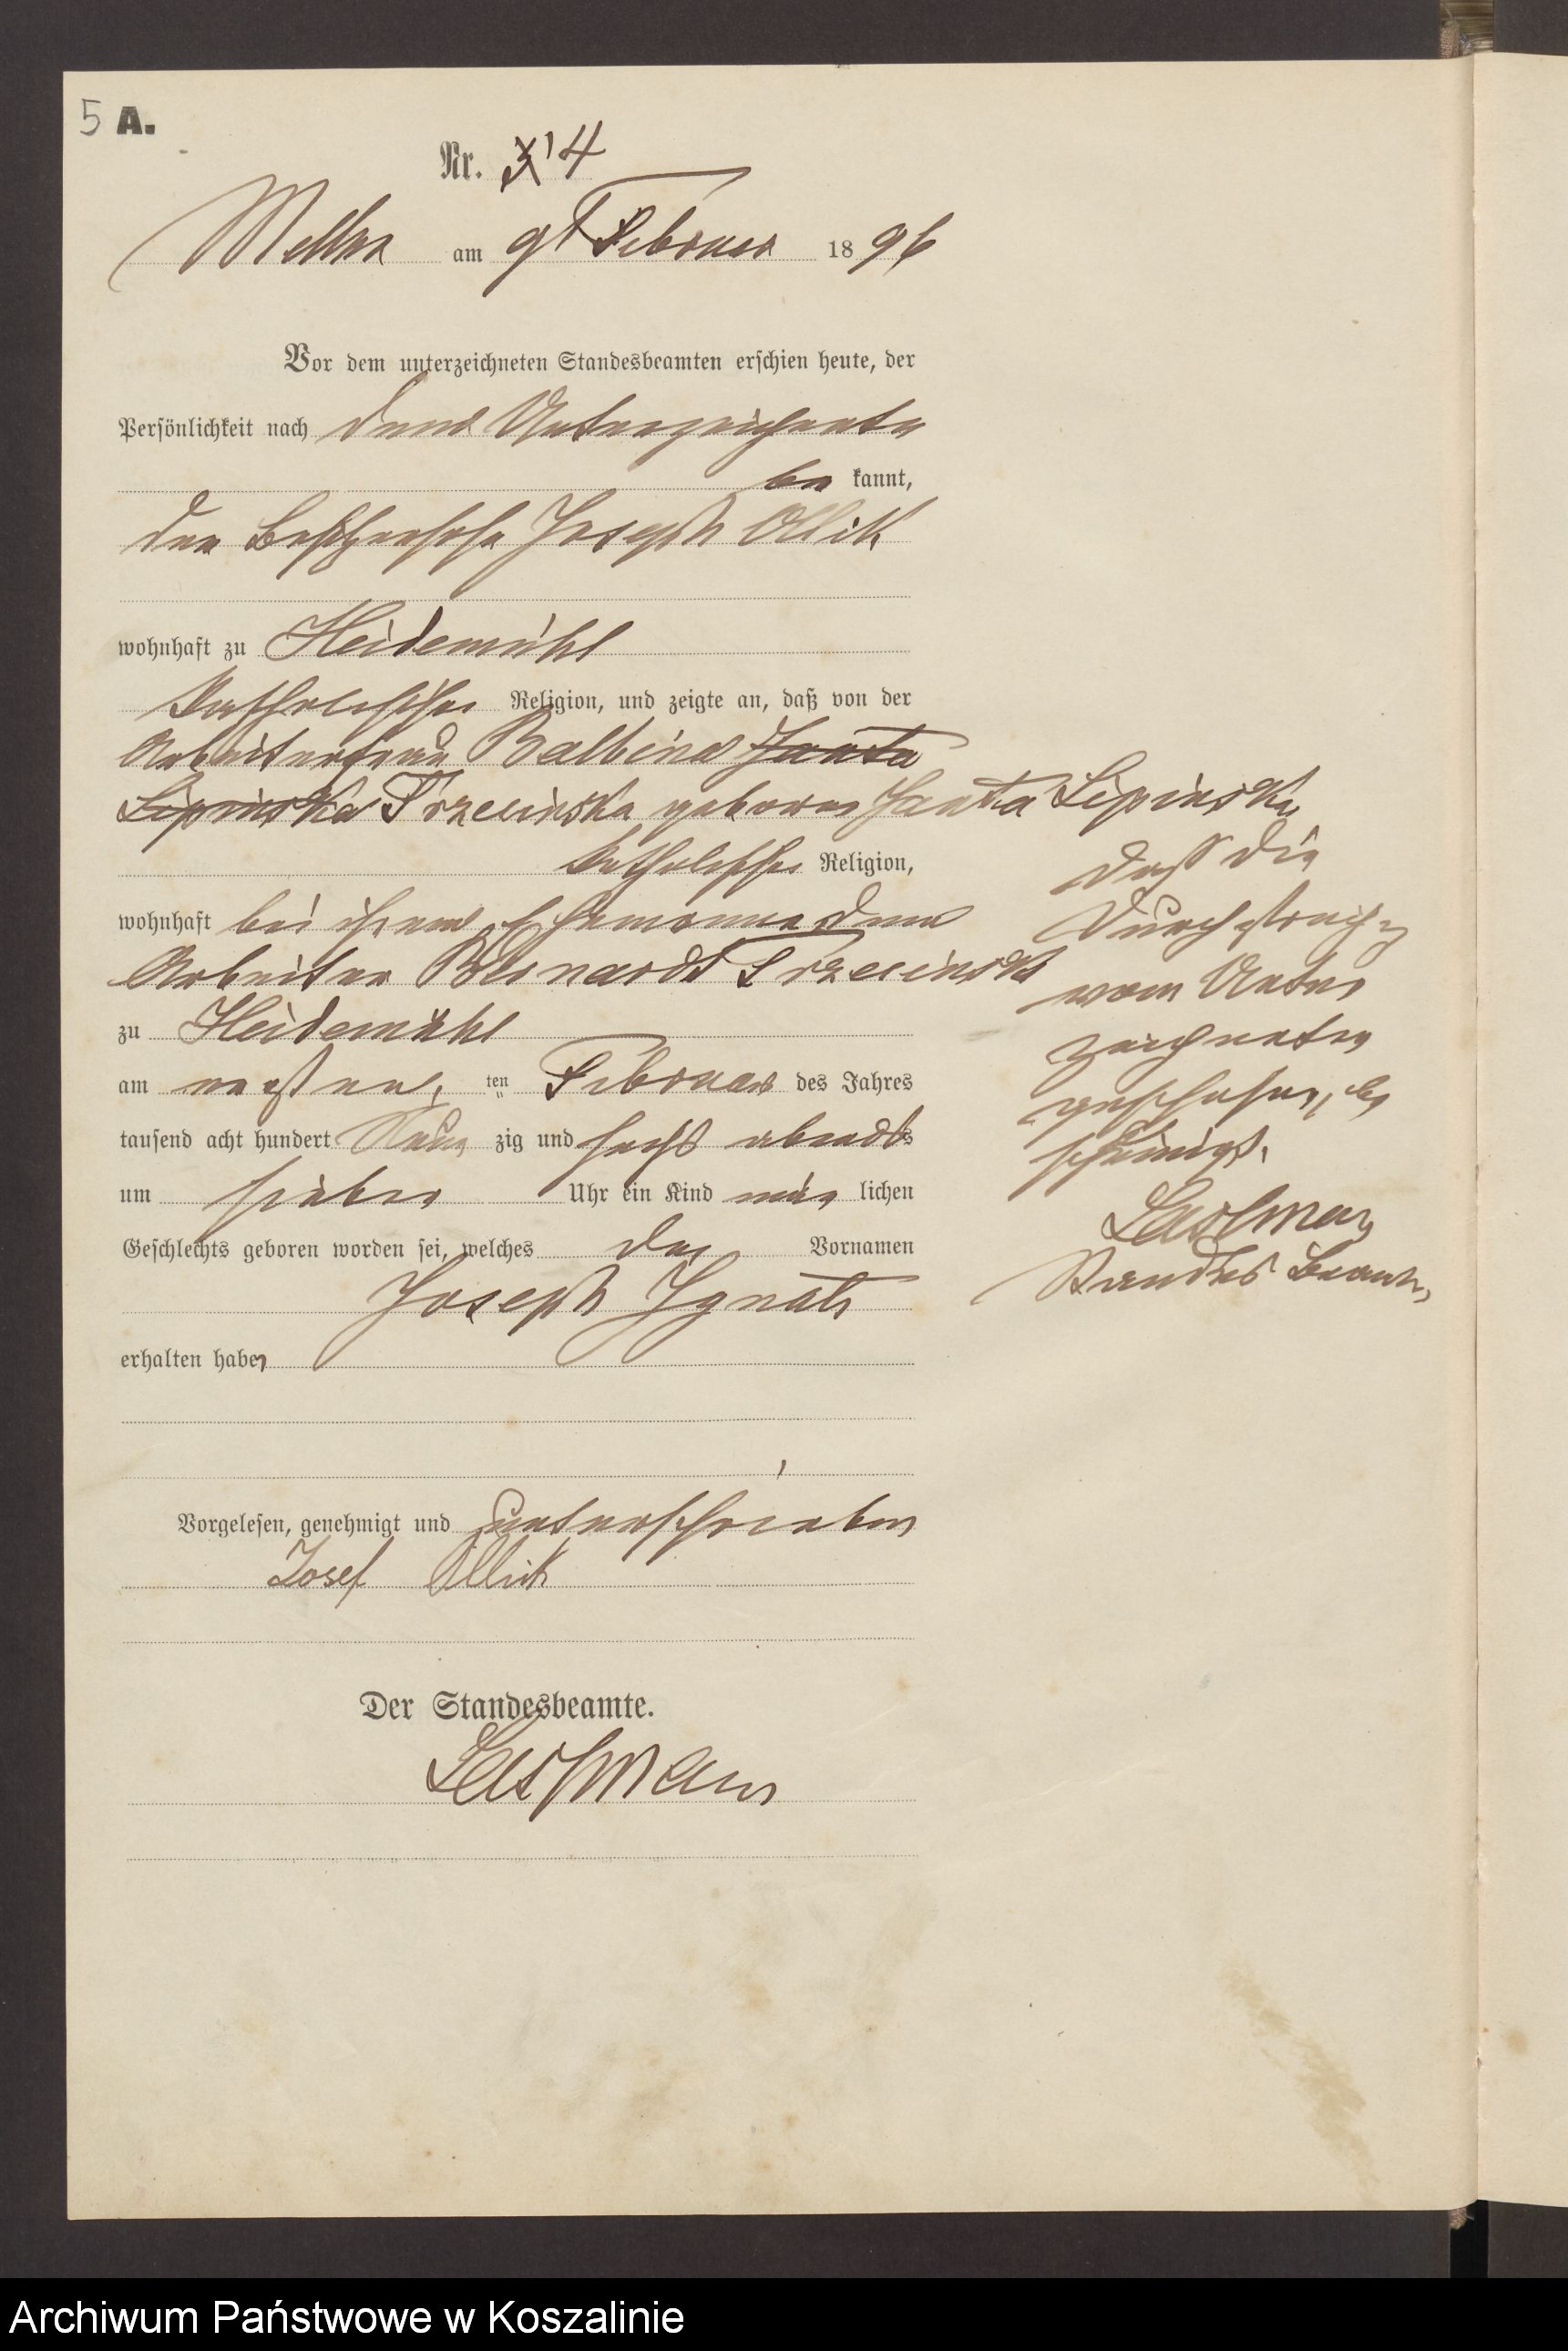 5 A.
Nr. 3 4
Mellno am 9t Februar 1896
Vor dem unterzeichneten Standesbeamten erschien heute, der
Persönlichkeit nach dem Unterzeichneten
be kannt,
der Besitzersohn Joseph Ollik
wohnhaft zu Heidemühl
Katholischer Religion, und zeigte an, daß von der
Arbeiterfrau Balbina Janta
Lipinska Trzecinska geborne Janta Lipinska
katholischer Religion,
wohnhaft bei ihrem Ehemanne dem
Arbeiter Bernardt Trzecinski
zu Heidemühl
am ersten ten Februar des Jahres
tausend acht hundert Neun zig und sechs abends
um sieben Uhr ein Kind män lichen
Geschlechts geboren worden sei, welches die Vornamen
Joseph Ignatz
erhalten haben
Vorgelesen, genehmigt und unterschrieben
Josef Ollik
Der Standesbeamte.
daß die
Durchstreichung
vom Unter
zeichneten
geschehen, be
scheinigt.
Standes Beamte
Archiwum Państwowe w Koszalinie